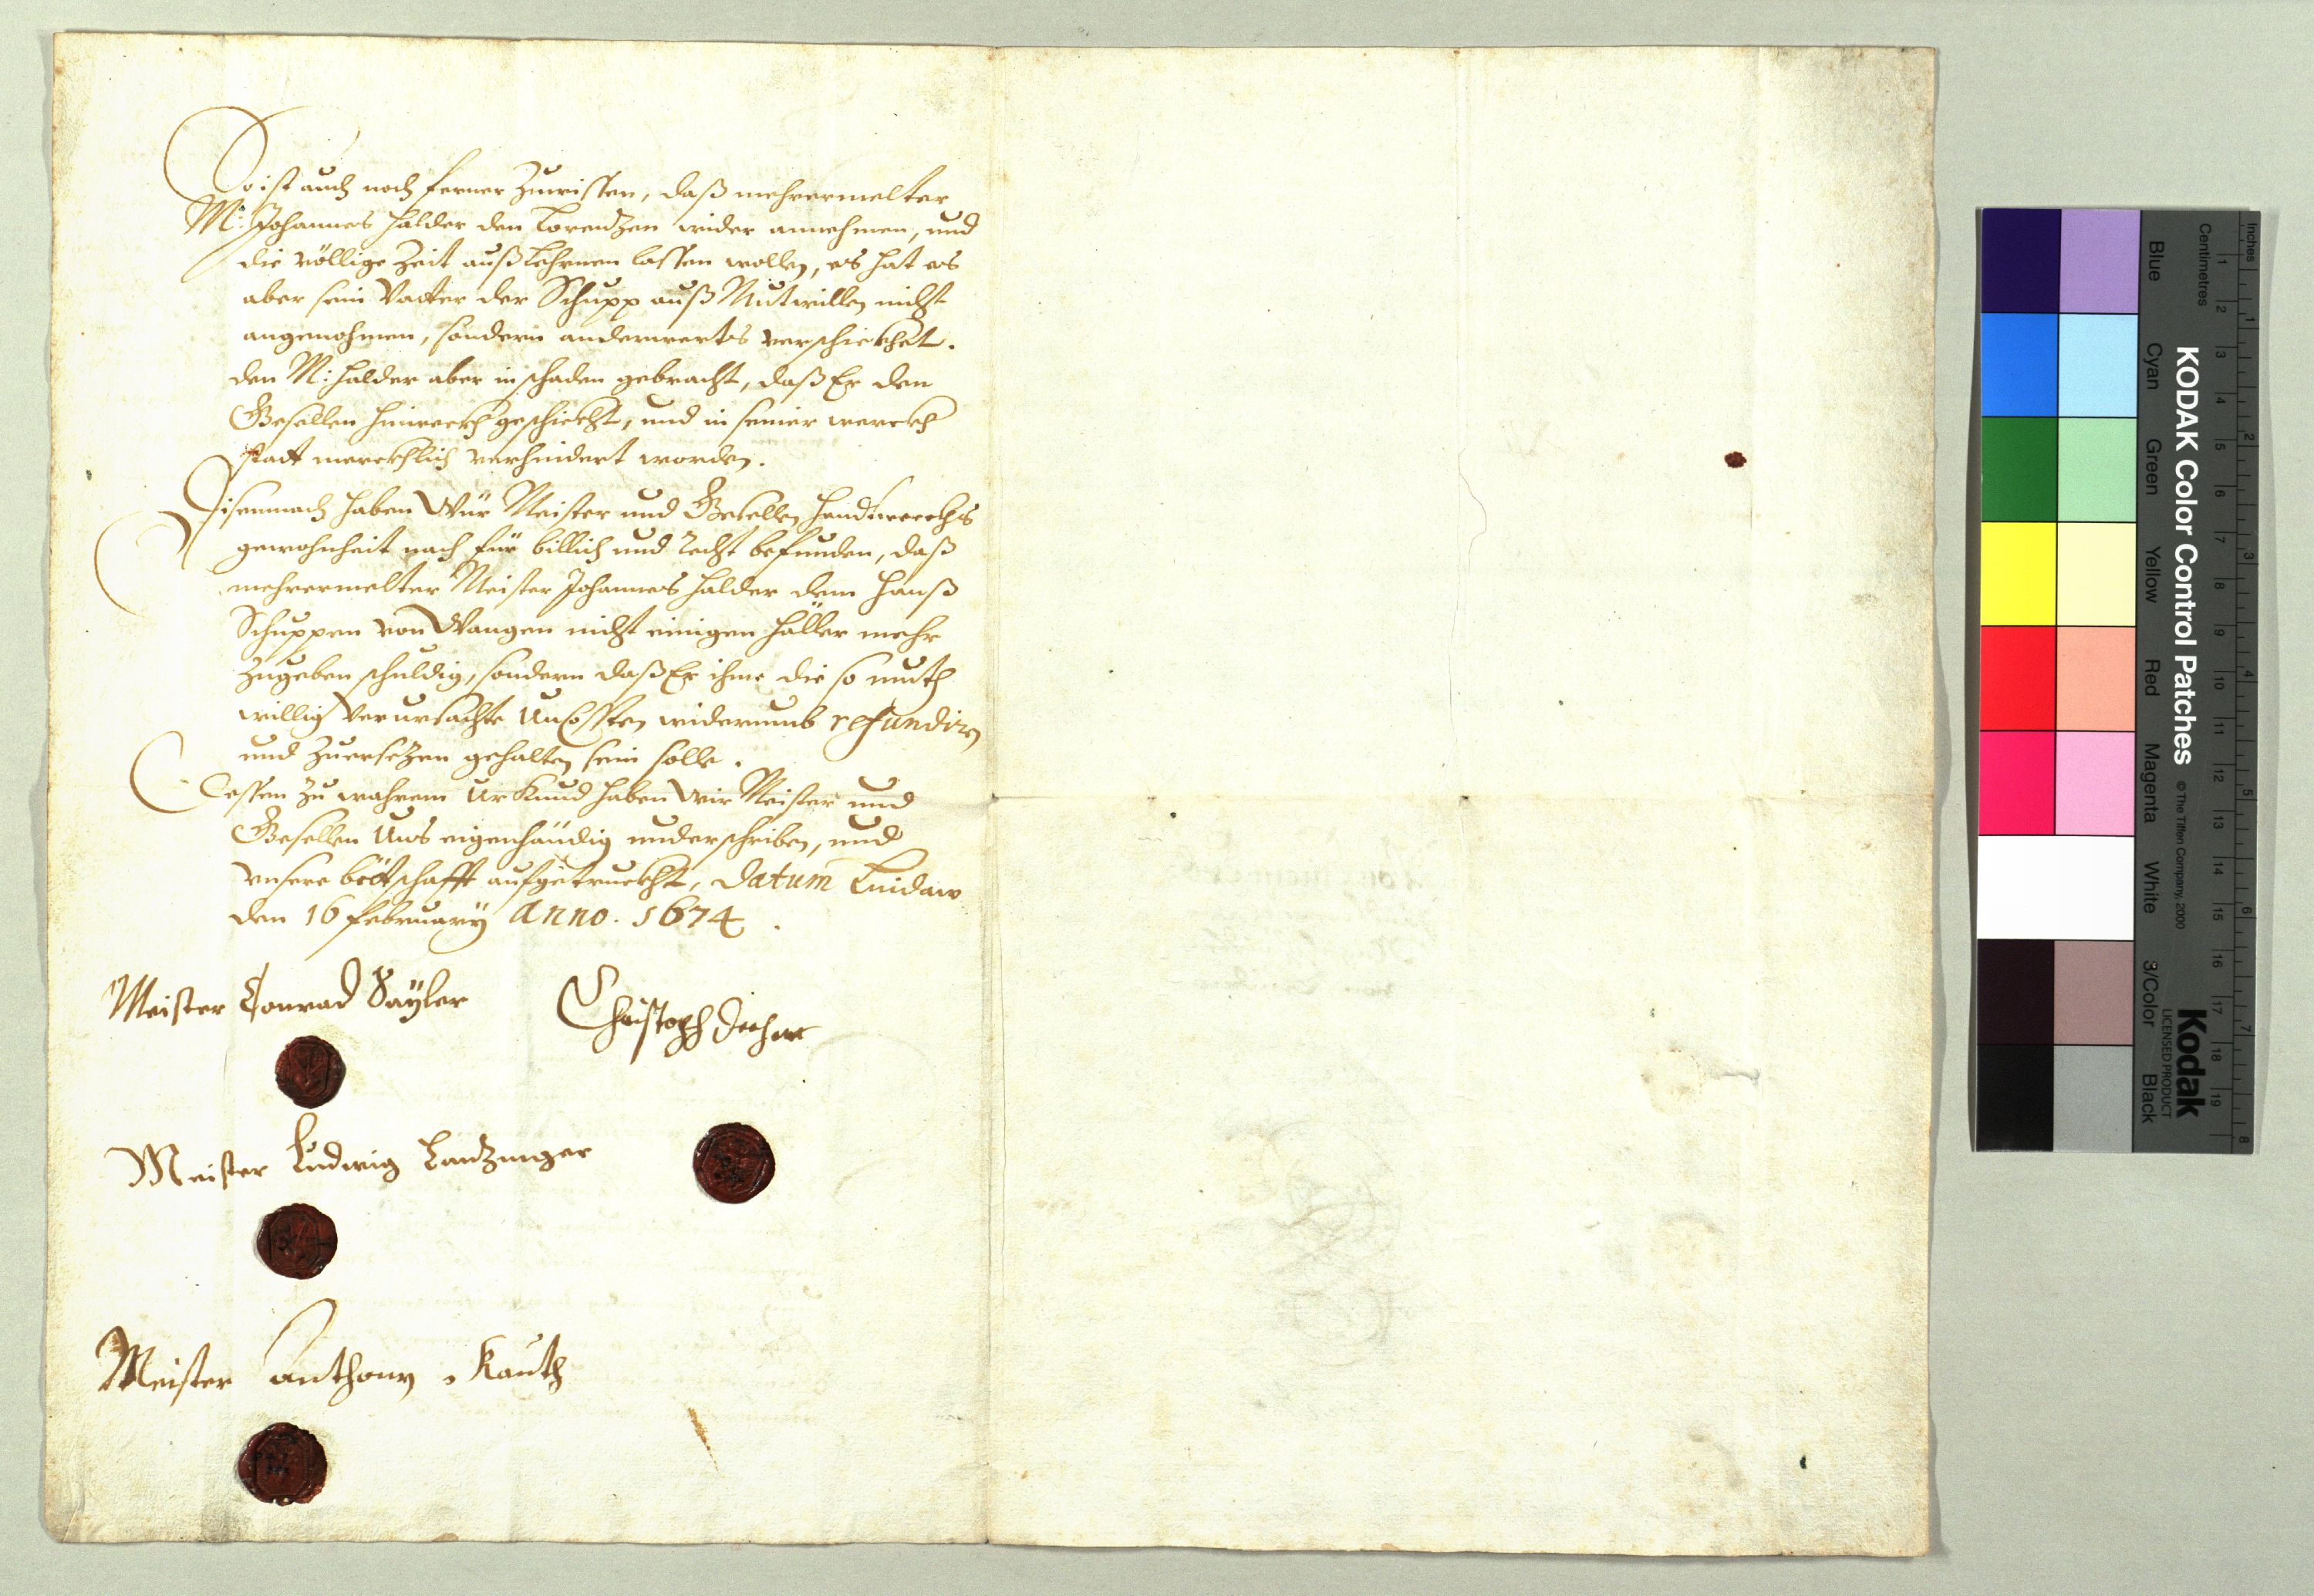 So ist auch noch ferner zuwissen, daß mehrermelter
M: Johannes Halder den Lorentzen wider annehmen, und
die völlige Zeit auß Lehrnen lassen wollen, es hat es
aber sein Vatter der Schupp auß Mutwillen nicht
angenohmen, sondern anderwerts verschickhet.
den M: Halder aber in schaden gebracht, daß Er den
Gesellen hinweckh geschickht, und in seiner werckh
statt merckhlich verhindert worden.
Disemnach haben Wür Meister und Gesellen Handtwerckhs
gewohnheit nach für billich und Recht befunden, daß
mehrermelter Meister Johannes Halder dem Hanß
Schuppen von Wangen nicht einigen Häller mehr
zugeben schuldig, sondern daß Er ihme die so muth
willig Verursachte Uncossten widerumb refundiren
und zuersezen gehalten sein solle.
Dessen zu wahrem Urkund haben Wir Meister und
Gesellen Uns eigenhändig underschriben, und
unsere bötschafft aufgetruckht, Datum Lindaw
den 16 february Anno. 1674.
Meister Conrad Sayler
Christoph
Meister Ludwig Lantzinger
Meister Anthony Kauth
KODAK Color Control Patches
© The Tiffen Company, 2000
Kodak
LICENSED PRODUCT
Inches
Centimetres
Blue
Cyan
Green
Yellow
Red
Magenta
White
3/Color
Black
1 2 3 4 5 6 7 8 9 10 11 12 13 14 15 16 17 18 19
1 2 3 4 5 6 7 8